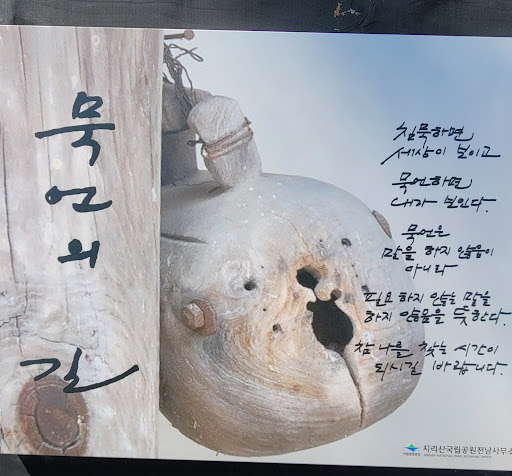 묵언의 길
침묵하면
세상이 보이고
묵언하면
내가 보인다.
묵언은
말을 하지 않음이
아니라
필요하지 않는 말을
하지 않음을 뜻한다.
참 나를 찾는 시간이
되시길 바랍니다.
지리산국립공원전남사무소